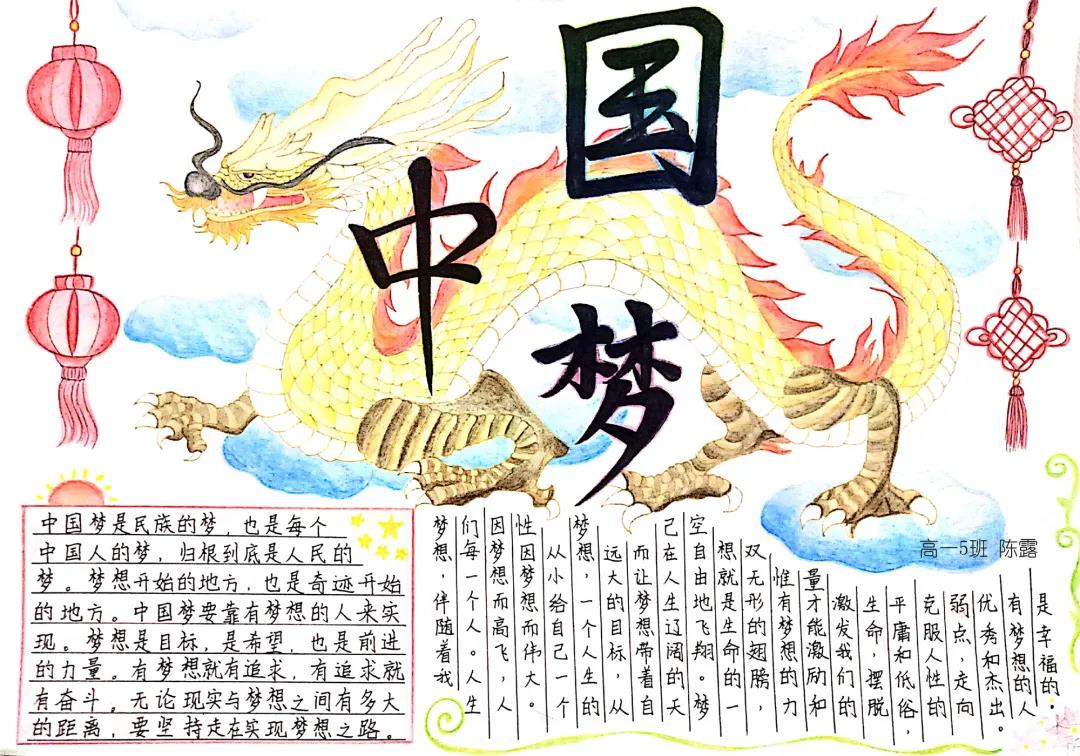 中国梦
中国梦是民族的梦，也是每个
中国人的梦，归根到底是人民的
梦。梦想开始的地方，也是奇迹开始
的地方。中国梦要靠有梦想的人来实
现。梦想是目标，是希望，也是前进
的力量。有梦想就有追求，有追求就
有奋斗。无论现实与梦想之间有多大
的距离，要坚持走在实现梦想之路。
梦想，伴随着我
们每一个人。人生
因梦想而高飞，人
性因梦想而伟大。
从小给自己一个
梦想，一个人生的
远大的目标，从
而让梦想带着自
己在人生辽阔的天
空自由地飞翔。梦
想就是生命的一
双无形的翅膀，
惟有梦想的力
量才能激励和
激发我们的
生命，摆脱
平庸和低俗，
克服人性的
弱点，走向
优秀和杰出。
有梦想的人
是幸福的
高一5班 陈露